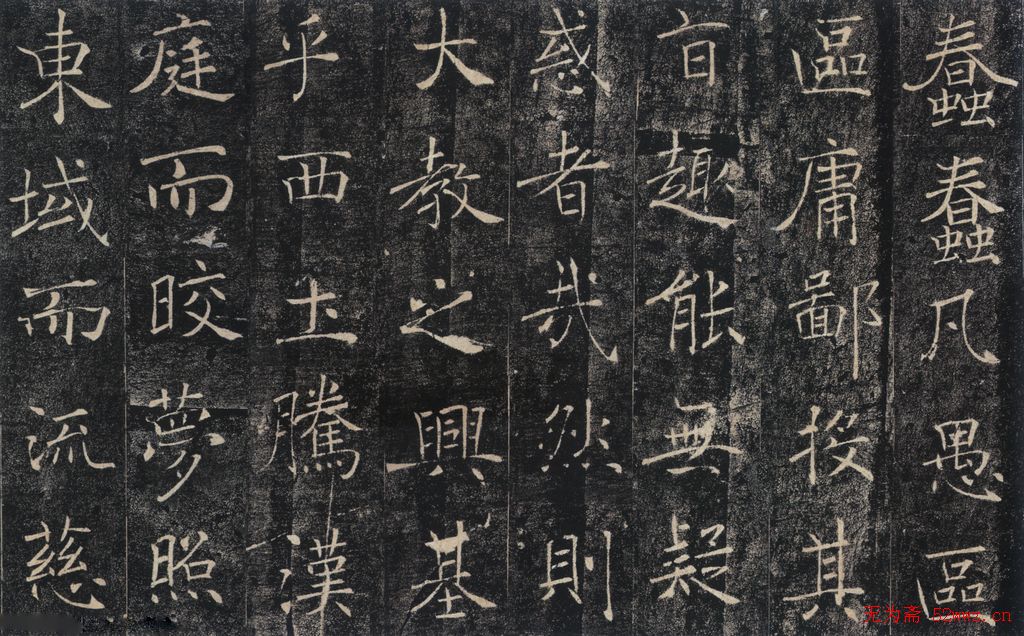 蠢蠢凡愚區
區庸鄙投其
㫖趣能無疑
惑者哉然則
大教之興基
乎西土騰漢
庭而皎夢照
東域而流慈
无为斋 52wwz.cn